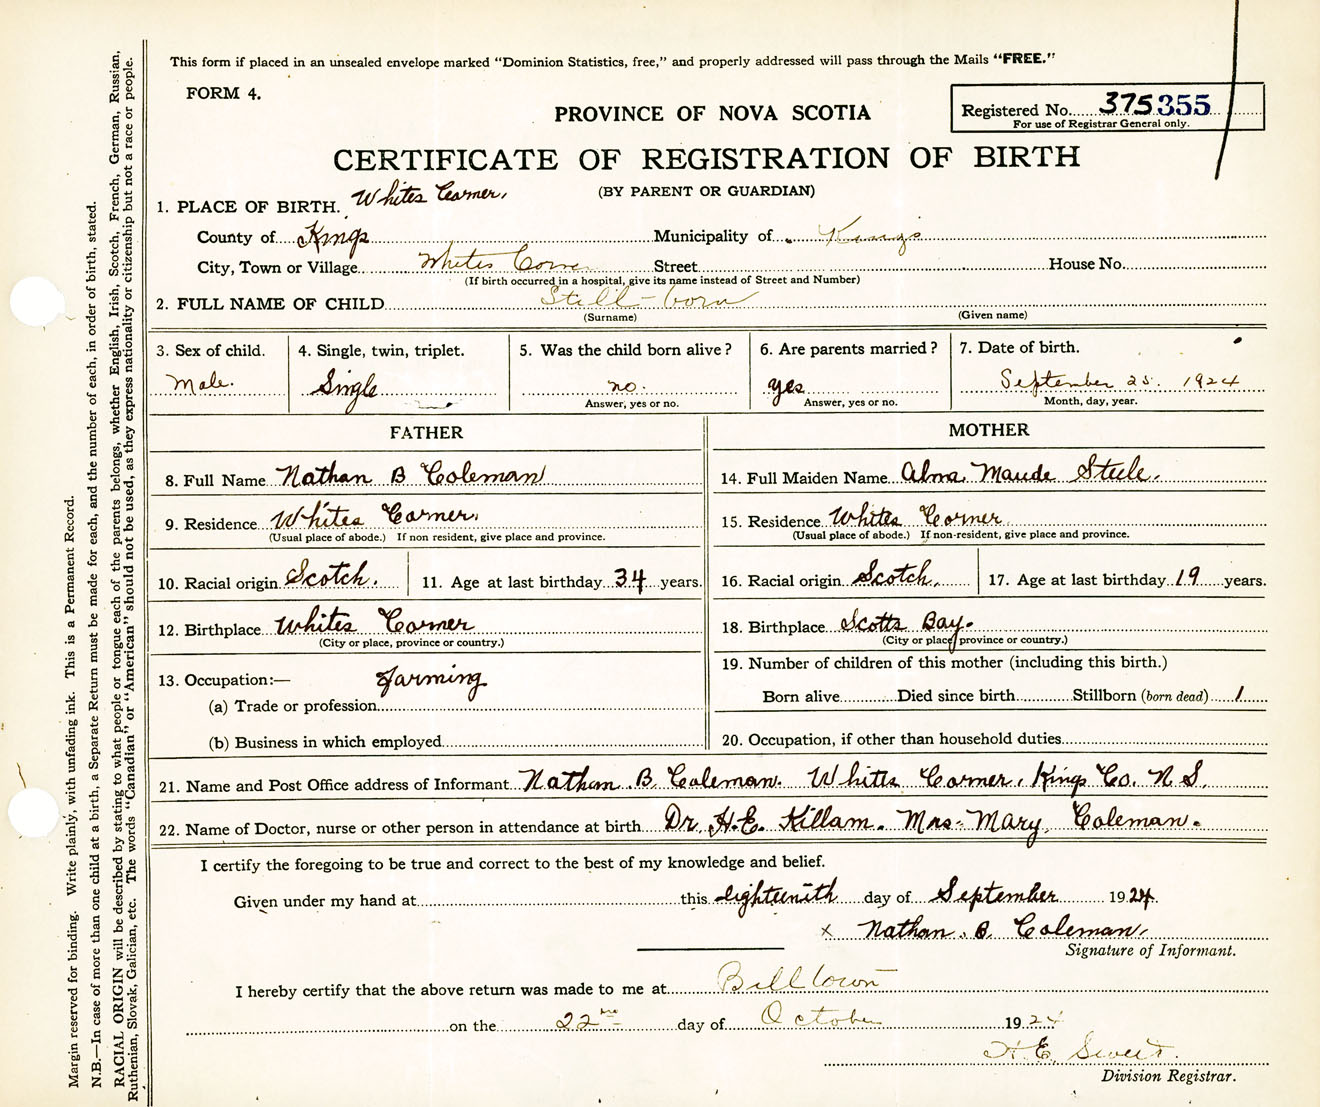 This form if placed in an unsealed envelope marked "Dominion Statistics, free," and properly addressed will pass through the Mails "FREE."
FORM 4.
PROVINCE OF NOVA SCOTIA
Registered No. 375355
For use of Registrar General only.
CERTIFICATE OF REGISTRATION OF BIRTH
(BY PARENT OR GUARDIAN)
1. PLACE OF BIRTH. Whites Corner.
County of Kings Municipality of Kings
City, Town or Village Whites Corner Street House No.
(If birth occurred in a hospital, give its name instead of Street and Number)
2. FULL NAME OF CHILD Still-born
(Surname) (Given name)
3. Sex of child. 4. Single, twin, triplet. 5. Was the child born alive? 6. Are parents married? 7. Date of birth.
Male. Single no. yes September 25. 1924
Answer, yes or no. Answer, yes or no. Month, day, year.
FATHER MOTHER
8. Full Name Nathan B Coleman
9. Residence Whites Corner.
(Usual place of abode.) If non resident, give place and province.
10. Racial origin Scotch. 11. Age at last birthday 34 years.
12. Birthplace Whites Corner
(City or place, province or country.)
13. Occupation:— farming
(a) Trade or profession
(b) Business in which employed
14. Full Maiden Name Alma Maude Steele.
15. Residence Whites Corner.
(Usual place of abode.) If non-resident, give place and province.
16. Racial origin Scotch. 17. Age at last birthday 19 years.
18. Birthplace Scotts Bay.
(City or place, province or country.)
19. Number of children of this mother (including this birth.)
Born alive Died since birth Stillborn (born dead) 1
20. Occupation, if other than household duties
21. Name and Post Office address of Informant Nathan B. Coleman. Whites Corner, Kings Co. N S.
22. Name of Doctor, nurse or other person in attendance at birth Dr. H.E. Killam. Mrs. Mary Coleman.
I certify the foregoing to be true and correct to the best of my knowledge and belief.
Given under my hand at this eighteenith day of September 1924.
x Nathan. B. Coleman.
Signature of Informant.
I hereby certify that the above return was made to me at Billtown
on the 22nd day of October 1924
H. E. Sweet.
Division Registrar.
Margin reserved for binding. Write plainly, with unfading ink. This is a Permanent Record.
N.B.—In case of more than one child at a birth, a Separate Return must be made for each, and the number of each, in order of birth, stated.
RACIAL ORIGIN will be described by stating to what people or tongue each of the parents belongs, whether English, Irish, Scotch, French, German, Russian,
Ruthenian, Slovak, Galician, etc. The words "Canadian" or "American" should not be used, as they express nationality or citizenship but not a race or people.